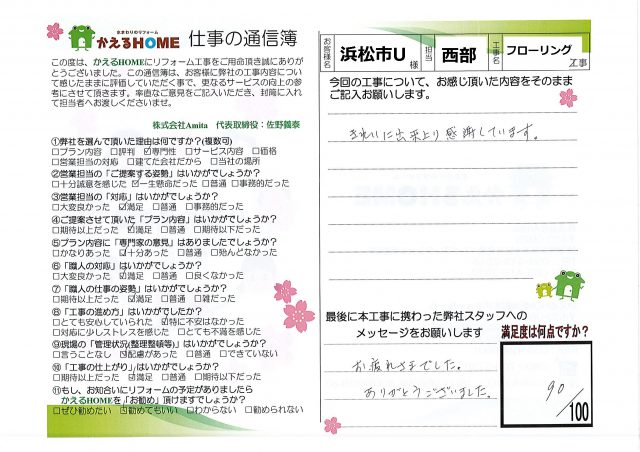 水まわりのリフォーム
かえるHOME 仕事の通信簿
この度は、かえるHOMEにリフォーム工事をご用命頂き誠にありが
とうございました。この通信簿は、お客様に弊社の工事内容につい
て感じたままに評価していただく事で、更なるサービスの向上の参
考にさせて頂きます。率直なご意見をご記入いただき、封筒に入れ
て担当者へお渡しくださいませ。
株式会社Amita 代表取締役：佐野義泰
①弊社を選んで頂いた理由は何ですか？(複数可)
□プラン内容 □評判 ☑専門性 □サービス内容 □価格
□営業担当の対応 □建てた会社だから □当社の場所
②営業担当の「ご提案する姿勢」はいかがでしょうか？
□十分誠意を感じた ☑一生懸命だった □普通 □事務的だった
③営業担当の「対応」はいかがでしょうか？
□大変良かった ☑満足 □普通 □事務的だった
④ご提案させて頂いた「プラン内容」はいかがでしょうか？
□期待以上だった ☑満足 □普通 □期待以下だった
⑤プラン内容に「専門家の意見」はありましたでしょうか？
□かなりあった ☑十分あった □普通 □殆んどなかった
⑥「職人の対応」はいかがでしょうか？
□大変良かった ☑満足 □普通 □良くなかった
⑦「職人の仕事の姿勢」はいかがでしょうか？
□期待以上だった ☑満足 □普通 □雑だった
⑧「工事の進め方」はいかがでしたか？
□とても安心していられた ☑特に不安はなかった
□対応に少しストレスを感じた □とても不満を感じた
⑨現場の「管理状況(整理整頓等)」はいかがでしょうか？
□言うことなし ☑配慮があった □普通 □できていない
⑩「工事の仕上がり」はいかがでしょうか？
□期待以上だった ☑満足 □普通 □期待以下だった
⑪もし、お知合いにリフォームの予定がありましたら
かえるHOMEを「お勧め」頂けますでしょうか？
□ぜひ勧めたい ☑勧めてもいい □わからない □勧められない
お客様名 浜松市U 様 担当 西部 工事名 フローリング 工事
今回の工事について、お感じ頂いた内容をそのまま
ご記入お願いします。
きれいに出来上り感謝しています。
最後に本工事に携わった弊社スタッフへの
メッセージをお願いします
お疲れさまでした。
ありがとうございました。
満足度は何点ですか？
90
/100